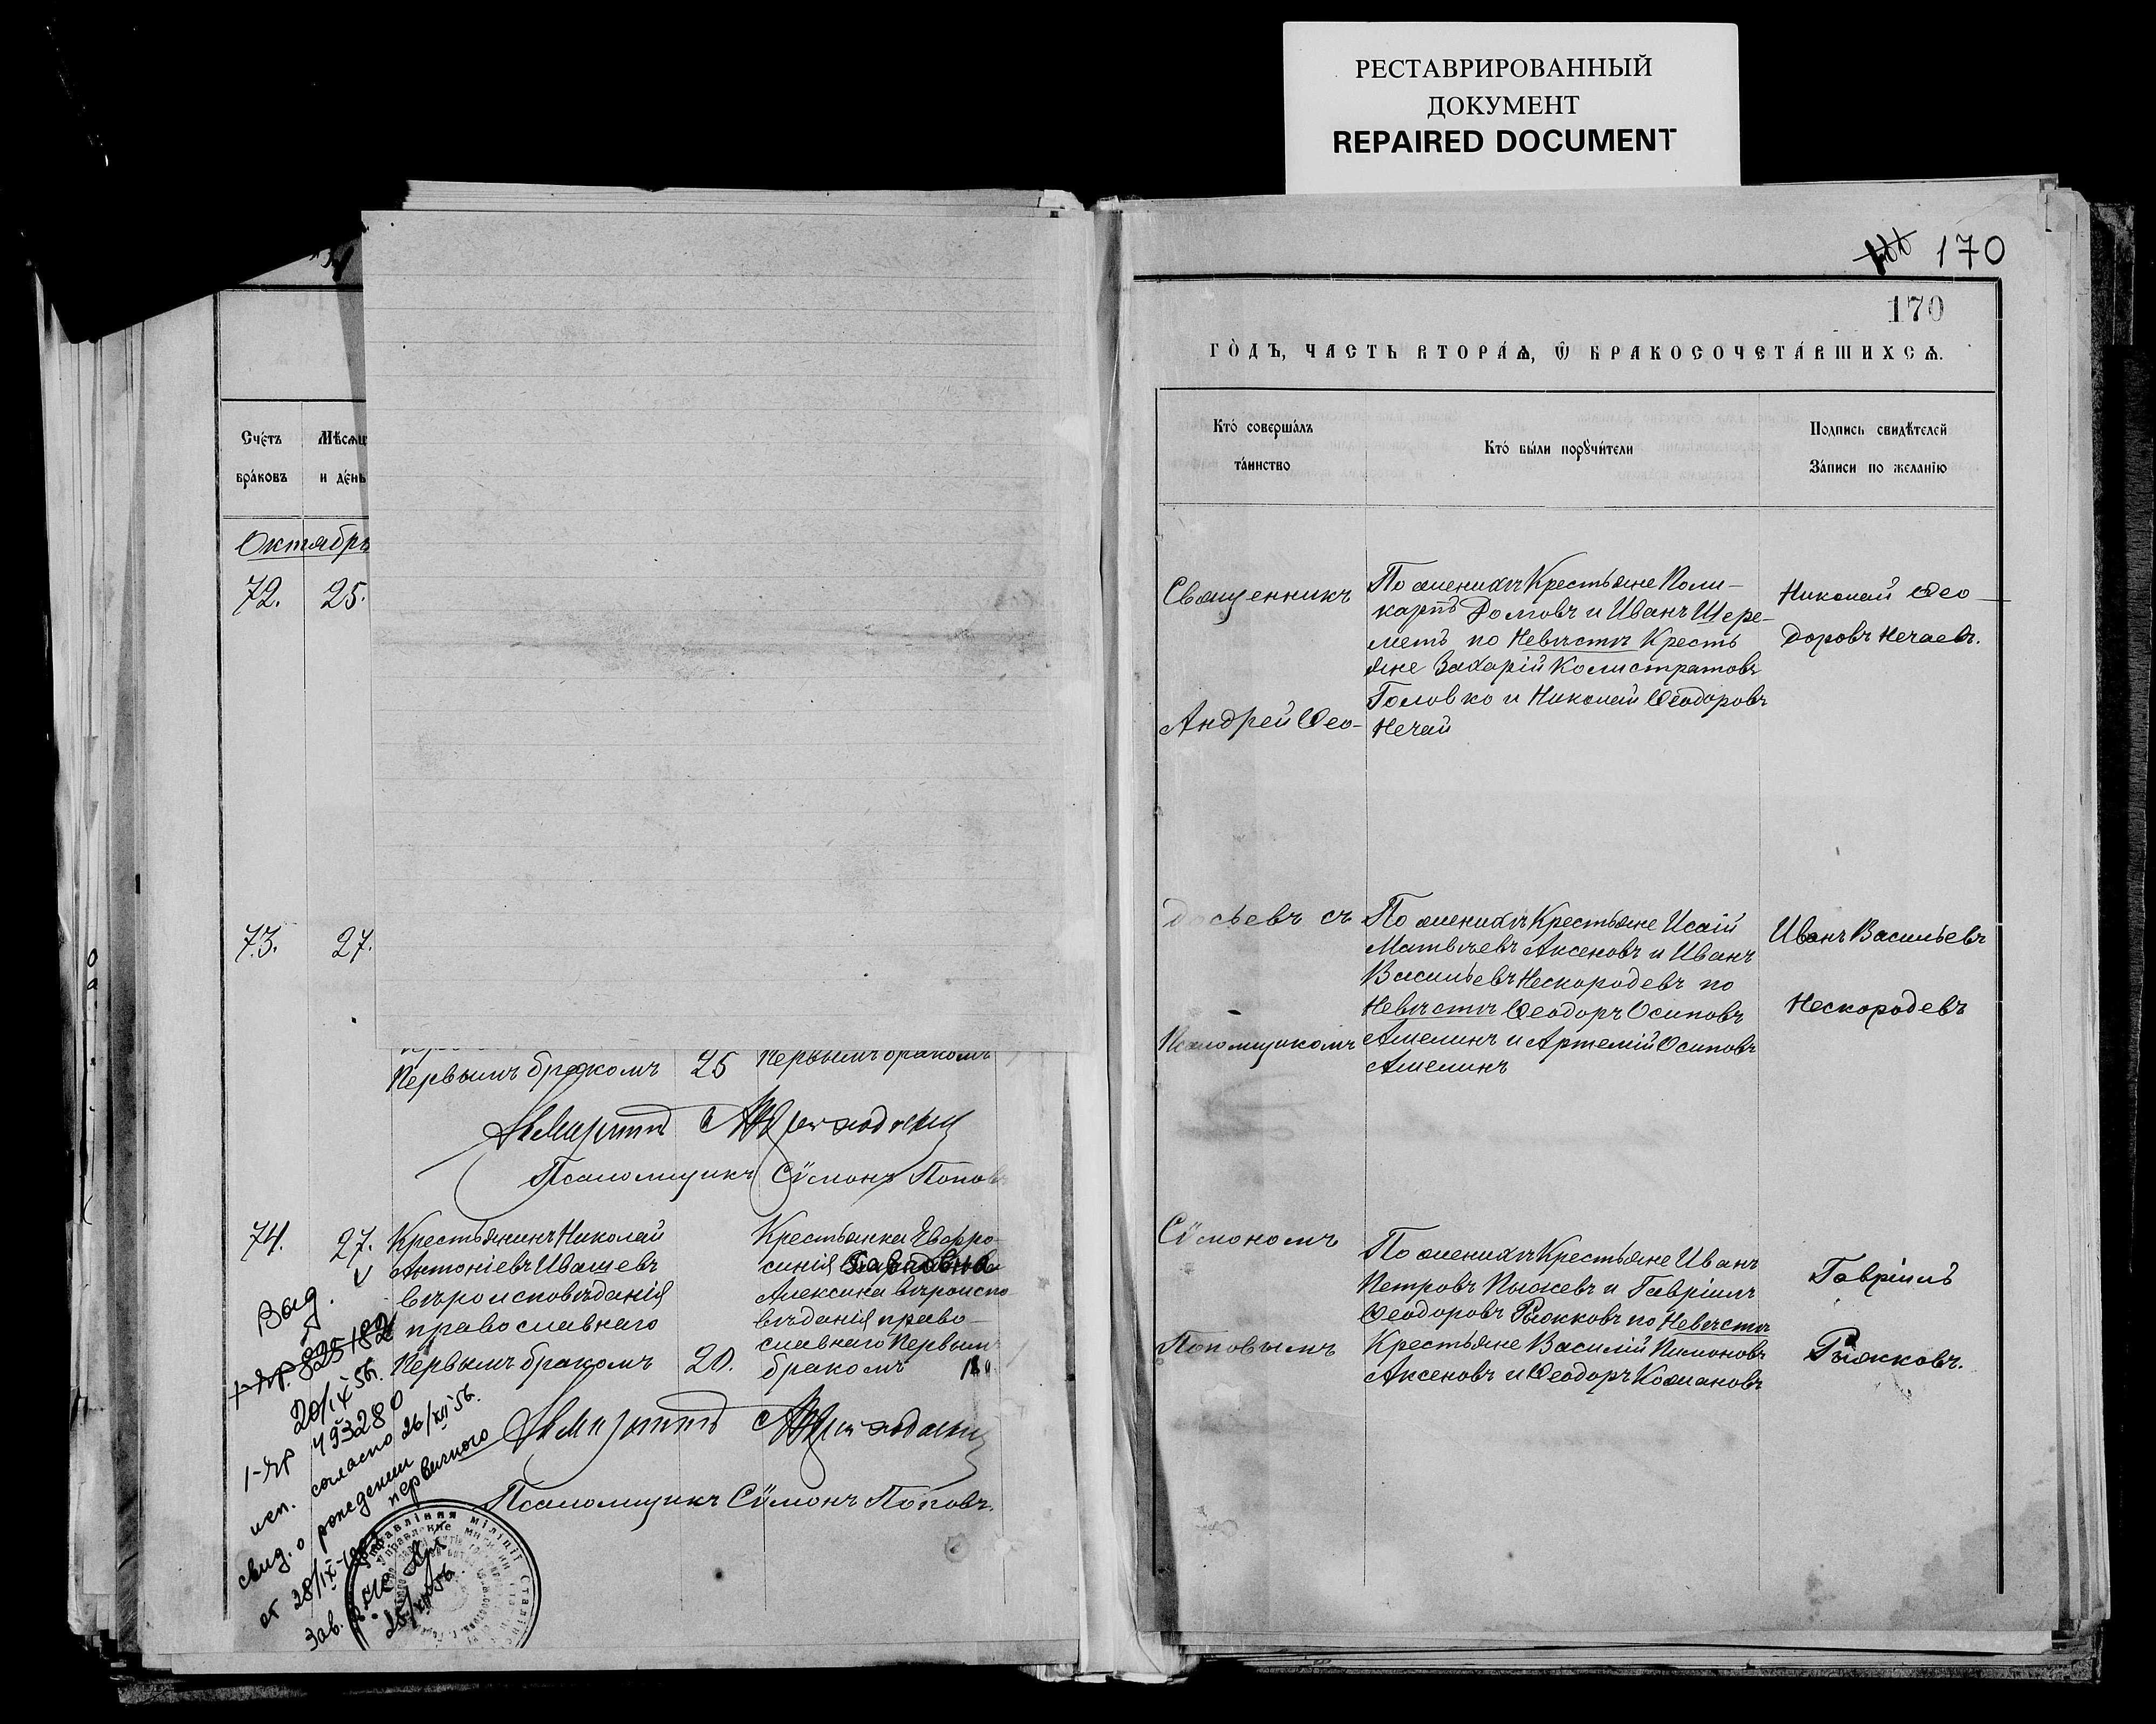 РЕСТАВРИРОВАННЫЙ
ДОКУМЕНТ
REPAIRED DOCUMENT
170
170
Счетъ
браковъ
Мѣсяц
и день
Октябрь
72. 25.
73. 27.
Первымъ бракомъ 25 Первымъ бракомъ
Псаломщикъ Сѵмонъ Попов
74. 27. Крестьянинъ Николай
Антоніевъ Ивашевъ
вѣроисповѣданія
православнаго
Первымъ бракомъ 20.
Крестьянка Евфро-
синія
Алексина вѣроиспо
вѣданія право-
славнаго Первым
бракомъ
Псаломщикъ Сѵмонъ Поповъ.
Выд.
20/IX 56.
I-ЯР 493280
исп. согласно 26/XII 56.
свид. о рождении
первичного
от 28/IX
Зав.
годъ, часть вторая, ѿ бракосочетавшихся.
Кто совершалъ
таинство
Кто были поручители
Подпись свидѣтелей
записи по желанію
Священникъ
Андрей Ѳео-
досьевъ съ
Псаломщикомъ
Сѵмономъ
Поповымъ
По женихѣ Крестьяне Поли-
карпъ Долговъ и Иванъ Шере-
метъ по Невѣстѣ Кресть
яне Захарій Калистратовъ
Головко и Николай Ѳеодоровъ
Нечай
Николай Ѳео-
доровъ Нечаевъ.
По женихѣ Крестьяне Исаій
Матвѣевъ Аксеновъ и Иванъ
Васильевъ Нескородевъ по
Невѣстѣ Ѳеодоръ Осиповъ
Амелинъ и Артемій Осиповъ
Амелинъ
Иванъ Васильевъ
Нескородевъ
По женихѣ Крестьяне Иванъ
Петровъ Пыжевъ и Гавріилъ
Ѳеодоровъ Рыжковъ по Невѣстѣ
Крестьяне Василій Пимоновъ
Аксеновъ и Ѳеодоръ Кожановъ
Гавріилъ
Рыжковъ.